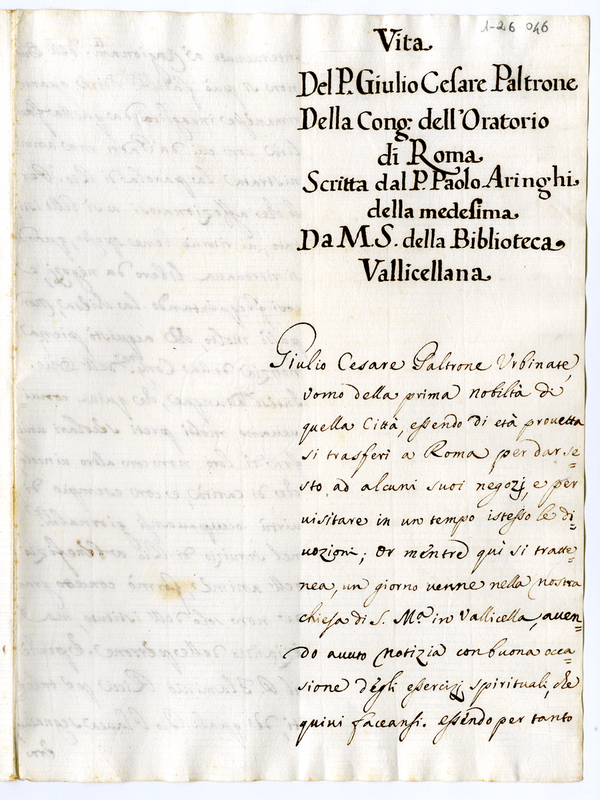 1-26 046
Vita
Del P. Giulio Cesare Paltrone
Della Cong. dell'Oratorio
di Roma
Scritta dal P. Paolo Aringhi
della medesima
Da M.S. della Biblioteca
Vallicellana
Giulio Cesare Paltrone Urbinate,
vomo della prima nobiltà di
quella Città, essendo di età provetta
si trasferì a Roma per dar se-
sto ad alcuni suoi negozj, e per
visitare in un tempo istesso le di-
vozioni; Or mentre quì si tratte-
nea, un giorno venne nella nostra
chiesa di S. Mª. in Vallicella, aven-
do avuto notizia con buona occa-
sione degli esercizj spirituali, che
quivi faceansi. essendo per tanto